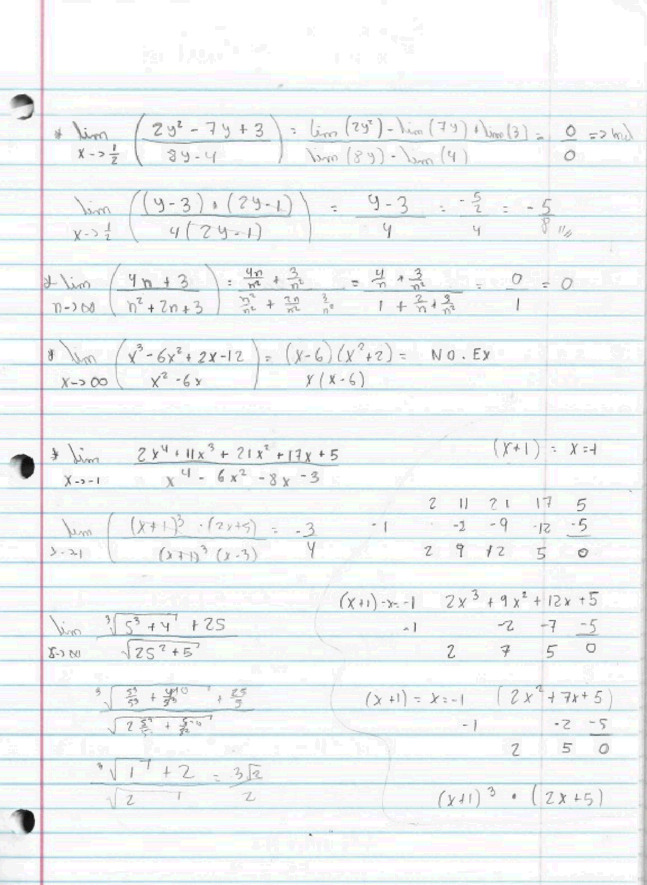 * lim x->1/2 ( (2y² - 7y + 3) / (8y - 4) ) = (lim (2y²) - lim (7y) + lim (3)) / (lim (8y) - lim (4)) = 0/0 =>
lim x->1/2 ( ((y-3) · (2y-1)) / (4(2y-1)) ) = (y-3)/4 = (-5/2)/4 = -5/8
* lim n->∞ ( (4n + 3) / (n² + 2n + 3) ) = (4n/n² + 3/n²) / (n²/n² + 2n/n² 3/n²) = (4/n + 3/n²) / (1 + 2/n + 3/n²) = 0/1 = 0
* lim x->∞ ( (x³ - 6x² + 2x - 12) / (x² - 6x) ) = (x-6)(x²+2) / x(x-6) = NO. EX
* lim x->-1 (2x⁴ + 11x³ + 21x² + 17x + 5) / (x⁴ - 6x² - 8x - 3)
(x+1) = x=-1
2 11 21 17 5
lim ( ((x+1)³ · (2x+5)) / ((x+1)³ (x-3)) = -3/4
-1 -2 -9 -12 -5
2 9 12 5 0
lim (³√(5³ + 4) + 25) / √(25² + 5)
(x+1) = x = -1 2x³ + 9x² + 12x + 5
-1 -2 -7 -5
2 7 5 0
(x+1) = x = -1 (2x² + 7x + 5)
-1 -2 -5
2 5 0
³√1 + 2 / √2 = 3√2 / 2
(x+1)³ · (2x+5)